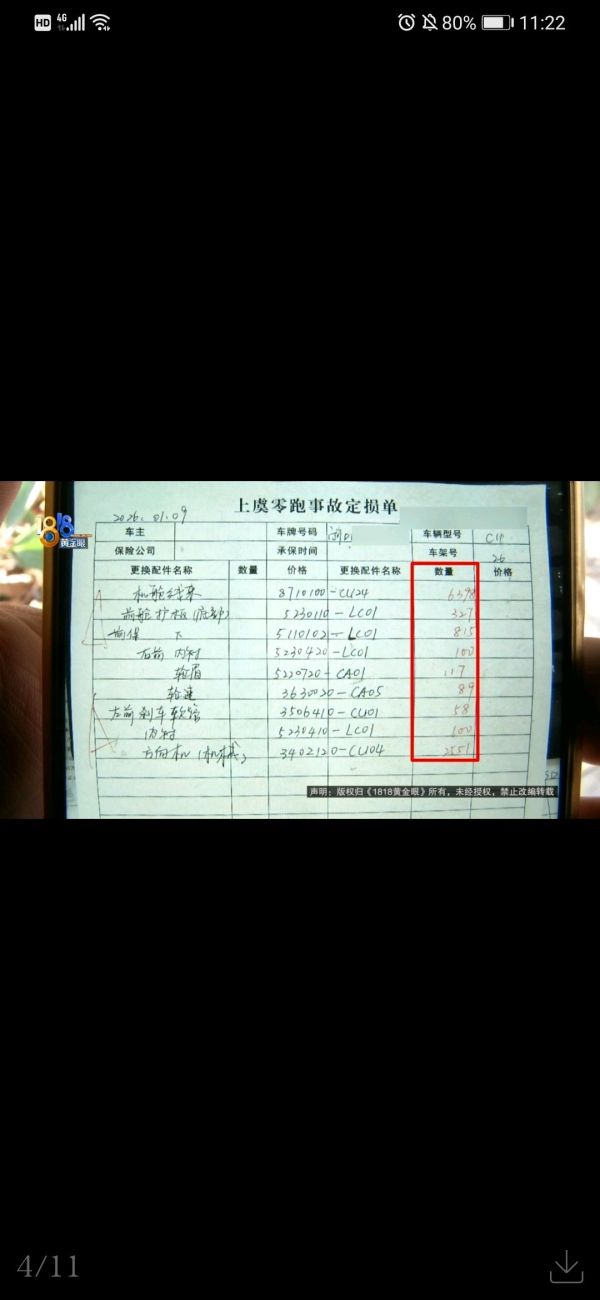 HD 4G 80% 11:22
1818
黄金眼
2026.01.09
上虞零跑事故定损单
车主 车牌号码 车辆型号 C11
保险公司 承保时间 车架号 26
更换配件名称 数量 价格 更换配件名称 数量 价格
机舱线束 8710100-CU24 6398
前舱护板(底部) 5230110-LC01 327
前保 下 5110102-LC01 815
右前 内衬 5230420-LC01 100
轮眉 5220720-CA01 117
轮速 3630020-CA05 89
左前 刹车软管 3506410-CU01 58
内衬 5230410-LC01 100
方向机(机械) 3402120-CU04 2551
声明:版权归《1818黄金眼》所有,未经授权,禁止改编转载
4/11